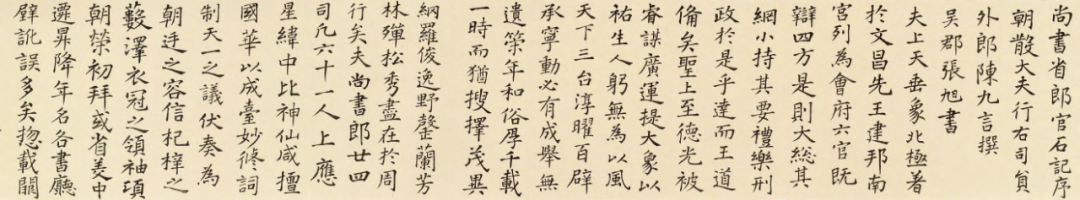 尚書省郎官石記序
朝散大夫行右司員
外郎陳九言撰
吳郡張旭書
夫上天垂象北極著
於文昌先王建邦南
宮列為會府六官既
辯四方是則大總其
網小持其要禮樂刑
政於是乎達而王道
俻矣聖上至德光被
睿謀廣運提大象以
祐生人躬無為以風
天下三台淳曜百辟
承寧動必有成舉無
遺筞年和俗厚千載
一時而猶搜擇茂異
網羅俊逸野罄蘭芳
林殫松秀盡在於周
行矣夫尚書郎廿四
司凡六十一人上應
星緯中比神仙咸擅
國華以成臺妙修詞
制天一之議伏奏為
朝廷之容信杞梓之
藪澤衣冠之領袖項
朝榮初拜或省美中
遷昇降年名各書廳
壁訛誤多矣惣載闕